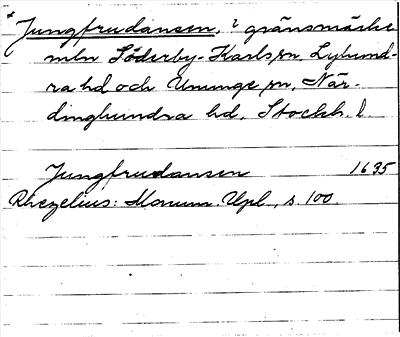 *Jungfrudansen, ? gränsmärke
mln Söderby-Karls sn, Lyhund-
ra hd och Ununge sn, När-
dinghundra hd, Stockh. l.
Jungfrudansen 1635
Rhezelius: Monum. Upl., s. 100.